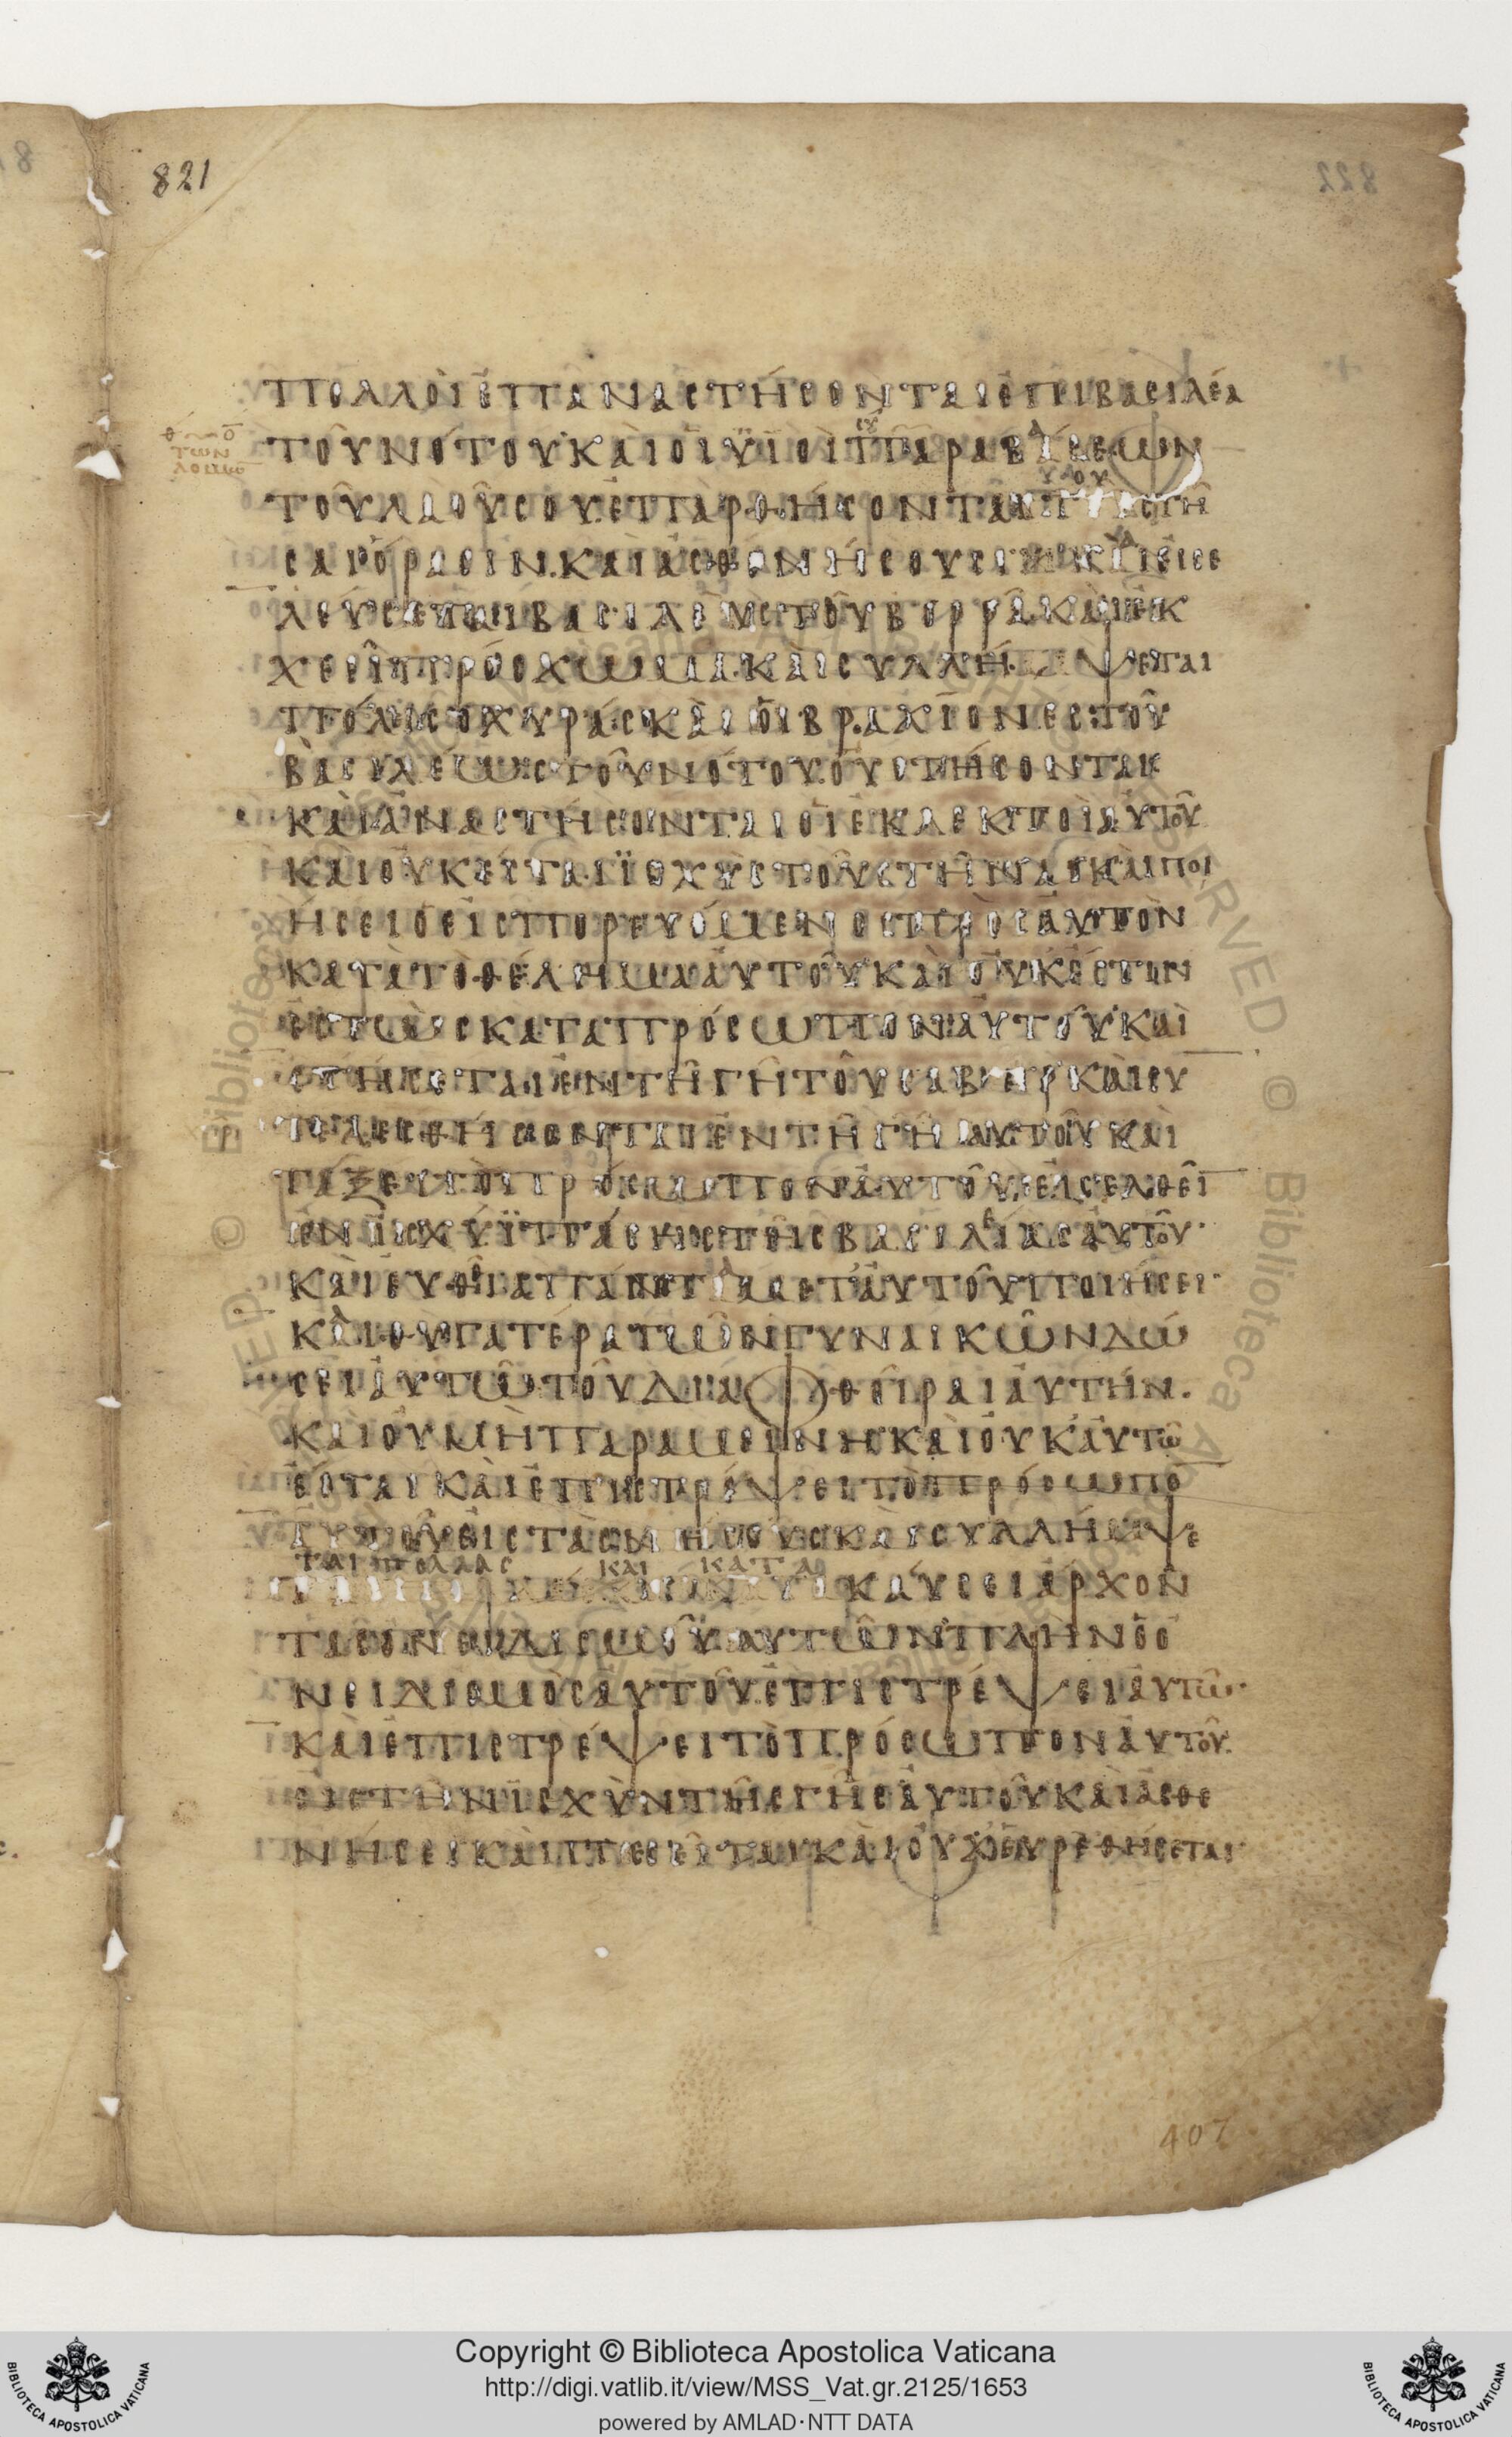 821
πολλοὶ ἐπαναστήσονται ἐπὶ βασιλέα
τοῦ νότου καὶ οἱ ϋἱοὶ παραβάσεων
τοῦ λαοῦ σου ἐπαρθήσονται τοῦ στῆ
σαι ὅρασιν. καὶ ἀσθενήσουσι καὶ εἰσε
λεύσεται βασιλεὺς τοῦ βορρᾶ. καὶ ἐκ
χεεῖ πρόσχωμα. καὶ συλλήμψεται
πόλεις ὀχυρὰς καὶ οἱ βραχίονες τοῦ
βασιλέως τοῦ νότου οὐ στήσονται
καὶ ἀναστήσονται οἱ ἐκλεκτοὶ αὐτοῦ
καὶ οὐκ ἔσται ϊσχὺς τοῦ στῆναι καὶ ποι
ήσει ὁ εἰσπορευόμενος πρὸς αὐτὸν
κατὰ τὸ θέλημα αὐτοῦ καὶ οὐκ ἔστιν
ἑστὼς κατὰ πρόσωπον αὐτοῦ καὶ
στήσεται ἐν τῇ γῇ τοῦ σαβεὶρ καὶ συ
τελεσθήσονται ἐν τῇ γῇ αὐτοῦ καὶ
τάξει τὸ πρόσωπον αὐτοῦ εἰσελθεῖ
ἐν ἰσχύϊ πάσης τῆς βασιλείας αὐτοῦ·
καὶ εὐθεῖα πάντα μετ' αὐτοῦ ποιήσει·
καὶ θυγατέρα τῶν γυναικῶν δώ
σει αὐτῷ τοῦ διαφθεῖραι αὐτήν.
καὶ οὐ μὴ παραμείνῃ καὶ οὐκ αὐτῷ
ἔσται καὶ ἐπιστρέψει τὸ πρόσωπο
αὐτοῦ εἰς τὰς νήσους καὶ συλλήμψε
ται πολλὰς καὶ κατα
καύσει ἄρχον
τας ὀνειδισμοῦ αὐτῶν πλὴν ὁ ὀ
νειδισμὸς αὐτοῦ ἐπιστρέψει αὐτῷ·
καὶ ἐπιστρέψει τὸ πρόσωπον αὐτοῦ.
εἰς τὴν ἰσχὺν τῆς γῆς αὐτοῦ καὶ ἀσθε
νήσει καὶ πεσεῖται καὶ οὐχ εὑρεθήσεται·
407
Copyright © Biblioteca Apostolica Vaticana
http://digi.vatlib.it/view/MSS_Vat.gr.2125/1653
powered by AMLAD·NTT DATA
BIBLIOTECA APOSTOLICA VATICANA
BIBLIOTECA APOSTOLICA VATICANA